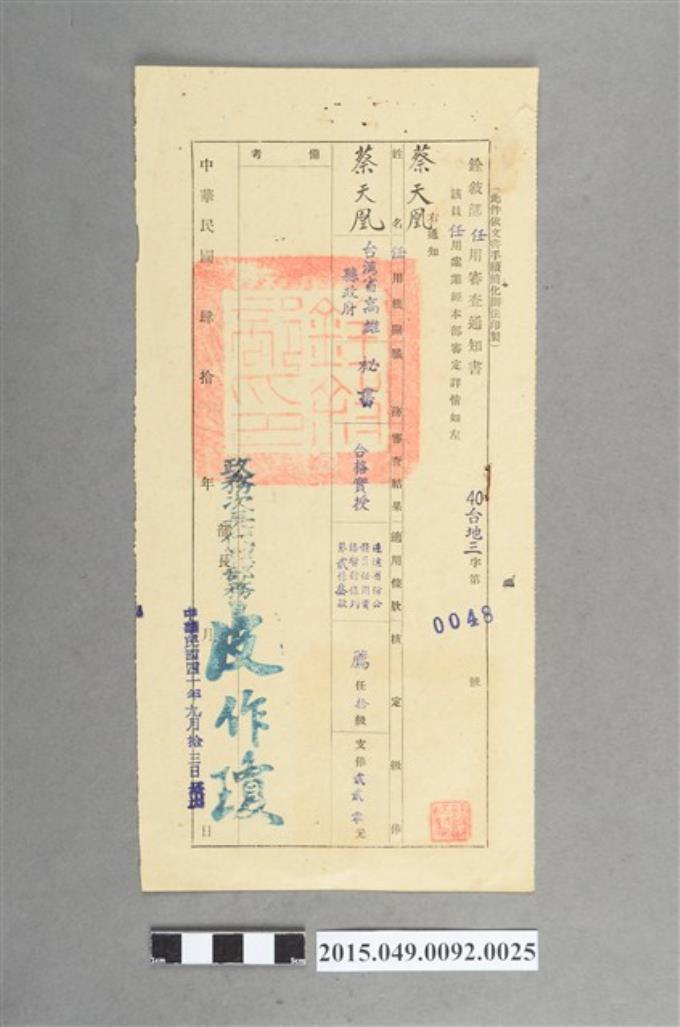 (此件依文書手續簡化辦法印製)
銓敘部任用審查通知書
40台地三字第0048號
該員任用案業經本部審定詳情如左
右通知
蔡天凰
姓名
任用機關職務
審查結果
適用條款
核定級俸
蔡天凰
台灣省高雄縣政府
秘書
合格實授
邊遠省份公務員任用資格暫行條例第貳條款
薦任拾級
支俸貳貳零元
備考
政務次長
部長
皮作瓊
中華民國肆拾年月日
中華民國四十年九月拾三日
2015.049.0092.0025